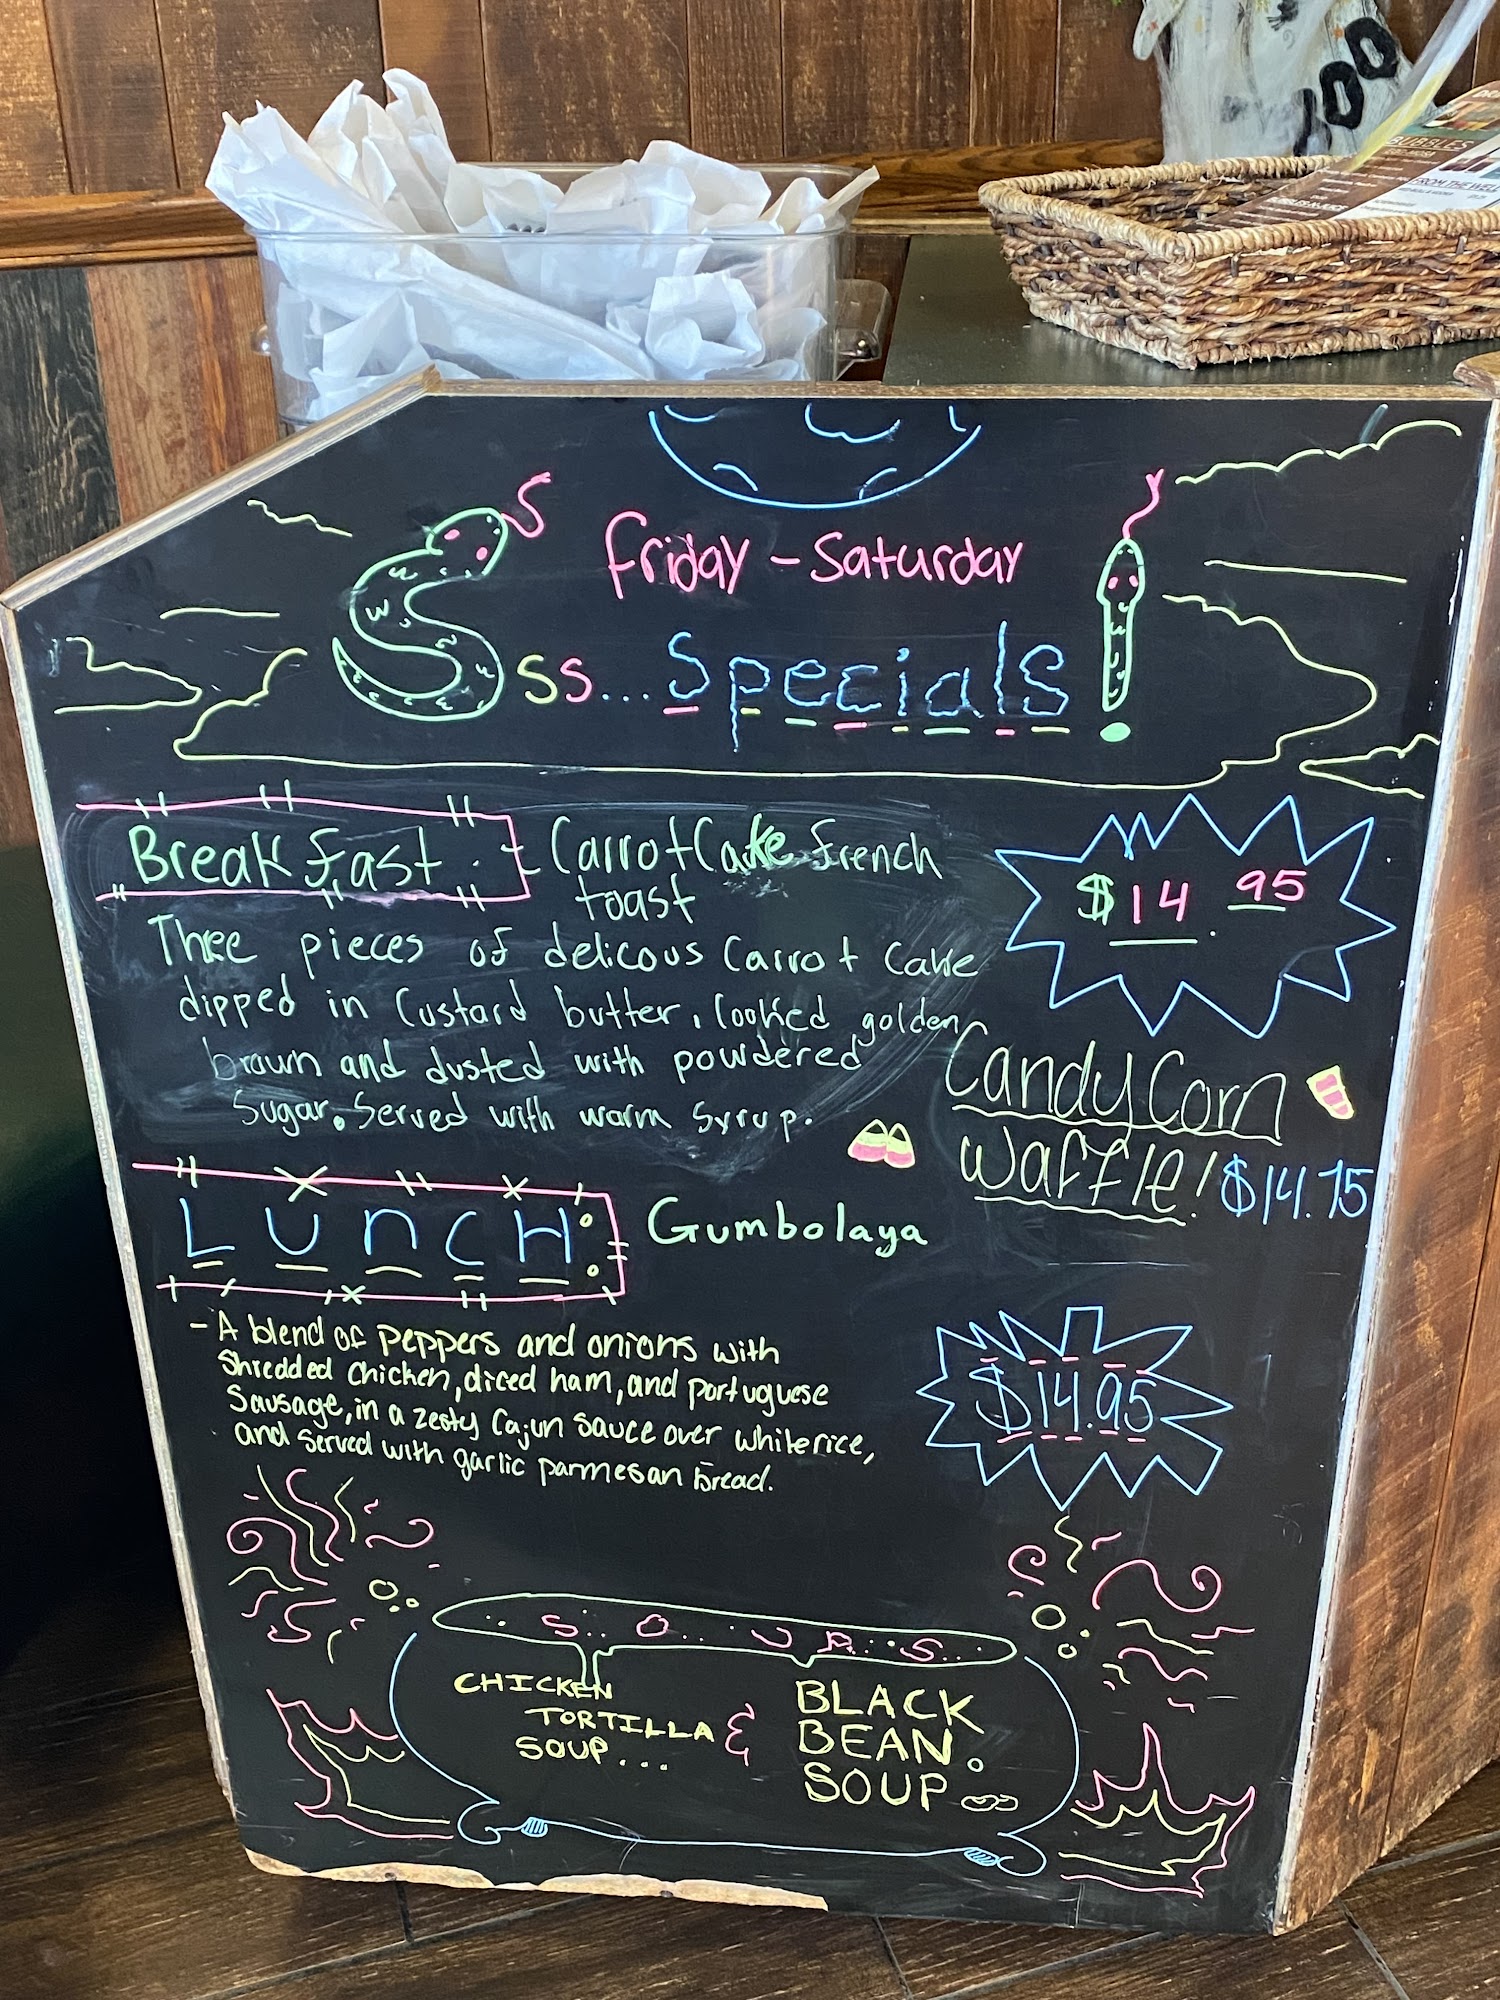 BOO
BUBBLES
FROM THE WELL
Friday - Saturday
Sss... Specials!
Breakfast: Carrot Cake french
toast
$14.95
Three pieces of delicous Carrot Cake
dipped in Custard butter, Cooked golden
brown and dusted with powdered
Sugar. Served with warm Syrup.
Candy Corn
Waffle! $14.75
LUnCH: Gumbolaya
- A blend of peppers and onions with
Shredded Chicken, diced ham, and portuguese
Sausage, in a zesty Cajun Sauce over white rice,
and served with garlic parmesan bread.
$14.95
SOUPS
CHICKEN
TORTILLA
SOUP...
&
BLACK
BEAN
SOUP